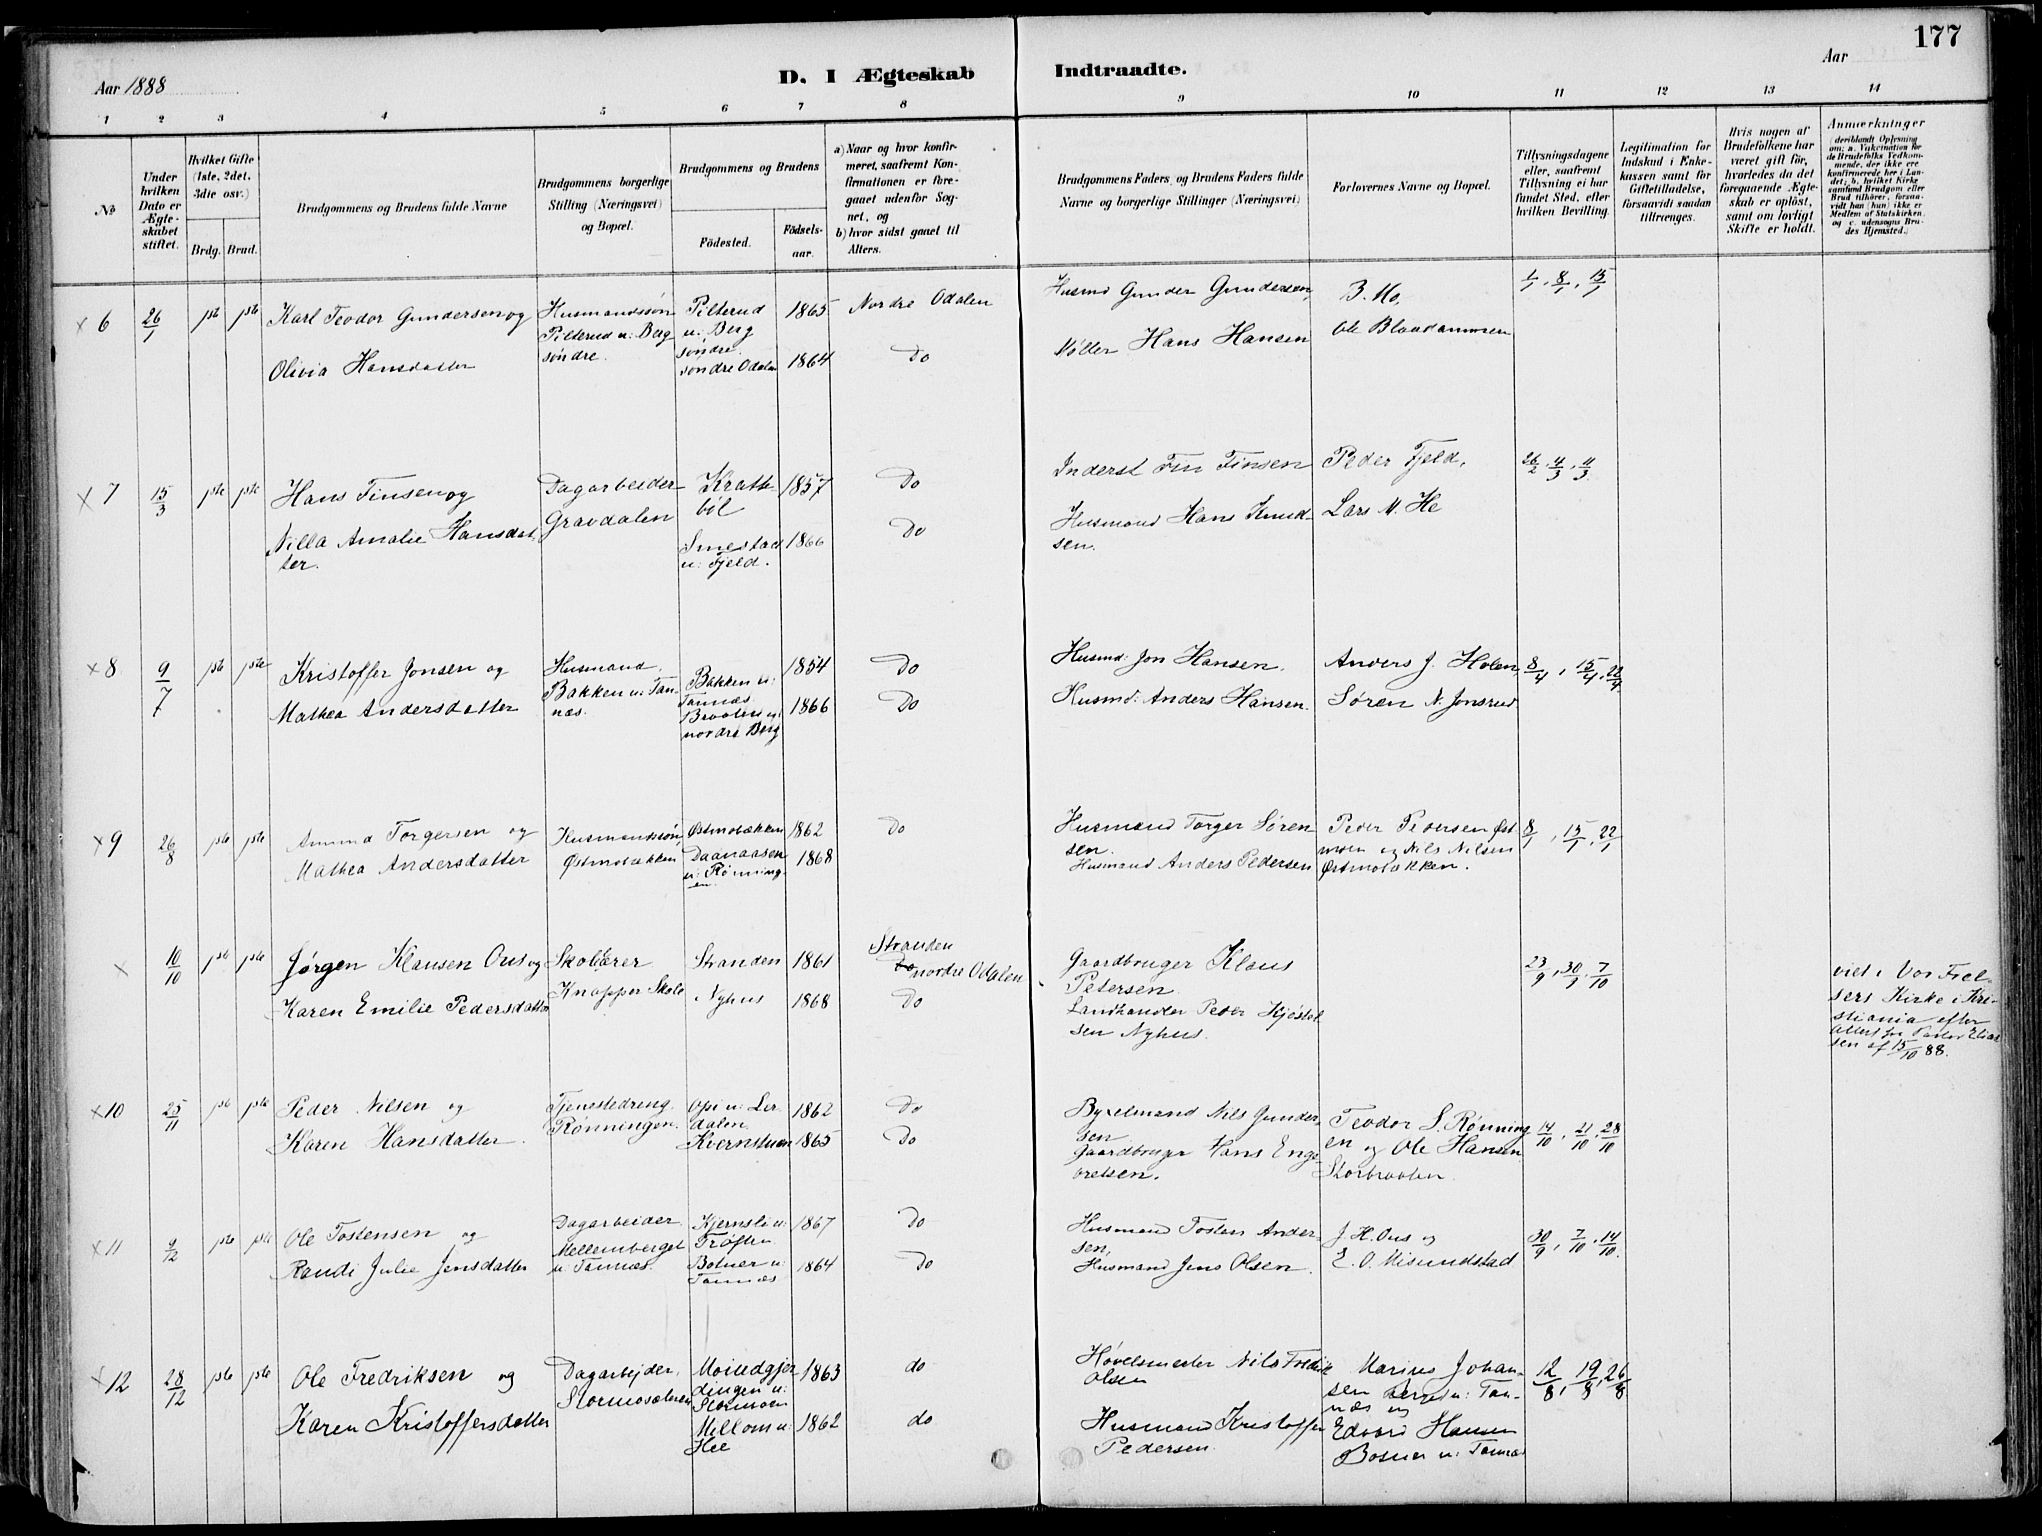 177
Aar 1888
D. I Ægteskab Indtraadte.
Aar
1 2 3 4 5 6 7 8 9 10 11 12 13 14
No
Under hvilken Dato er Ægteskabet stiftet.
Hvilket Gifte (1ste, 2det, 3die osv.)
Brdg. Brud.
Brudgommens og Brudens fulde Navne
Brudgommens borgerlige Stilling (Næringsvei) og Bopæl.
Brudgommens og Brudens
Födested.
Födselsaar.
a) Naar og hvor konfirmeret, saafremt Konfirmationen er foregaaet udenfor Sognet, og
b) hvor sidst gaaet til Alters.
Brudgommens Faders og Brudens Faders fulde Navne og borgerlige Stillinger (Næringsvei)
Forlovernes Navne og Bopæl.
Tillysningsdagene eller, saafremt Tillysning ei har fundet Sted, efter hvilken Bevilling.
Legitimation for Indskud i Enkekassen samt for Giftetilladelse, forsaavidt saadan tiltrænges.
Hvis nogen af Brudefolkene har været gift för, hvorledes da det foregaaende Ægteskab er oplöst, samt om lovligt Skifte er holdt.
Anmærkninger
(deriblandt Oplysning om: a. Vakcination for de Brudefolks Vedkommende, der ikke ere konfirmerede her i Landet; b. hvilket Kirkesamfund Brudgom eller Brud tilhörer, forsaavidt han (hun) ikke er Medlem af Statskirken, og c. udensogns Brudes Hjemsted.)
x 6 26/1 1ste 1ste Karl Teodor Gundersen og
Husmandssøn Pilterud u: Berg søndre.
Pilterud u: Berg søndre. 1865 Nordre Odalen
Husmd Gunder Gundersen,
B. Mo,
1/1, 8/1, 15/1
Olivia Hansdatter
søndre Odalen 1864 Do
Hans Hansen
Ole
x 7 15/3 1ste 1ste Hans Finsen og
Dagarbeider Gravdalen
Kratbøl 1857 Do
Inderst Fin Finsen
Peder Fjeld,
26/2, 4/3, 11/3.
Nilla Amalie Hansdatter.
Smestad u: Fjeld. 1866 Do
Husmand Hans Knudsen.
Lars M. He
x 8 9/7 1ste 1ste Kristoffer Jonsen og
Husmand, Bakken u: Tannæs.
Bakken u: Tannæs 1854 Do
Husmd: Jon Hansen.
Anders J. Holen,
8/4, 15/4, 22/4
Mathea Andersdatter
Braaten u: nordre Berg 1866 Do
Husmd: Anders Hansen.
Søren N. Jonsrud
x 9 26/8 1ste 1ste Torgersen og
Husmandssøn, Østmobækken
Østmobækken 1862 Do
Husmand Torger Sørensen.
Peder Pedersen Østmoen og Nils Nilsen Østmobækken.
8/1, 15/1, 22/1
Mathea Andersdatter
Daanaasen u: Rønningen. 1868
Husmand Anders Pedersen
x 10/10 1ste 1ste Jørgen Klausen Ous og
Skolelærer Knapper Skole
Stranden 1861 Stranden nordre Odalen
Gaardbruger Klaus Petersen
23/9, 30/9, 7/10
Karen Emilie Pedersdatter
Nyhus 1868 Do
Landhandler Peder Kjøstelsen Nyhus.
viet i Vor Frelsers Kirke i Kristiania efter Attest fra Pastor Eliassen af 15/10 88.
x 10 25/11 1ste 1ste Peder Nilsen og
Tjenestedreng, Rønningen.
Opi u: Lerdalen 1862 Do
Bygselmand Nils Gundersen
Teodor S. Rønningen og Ole Hansen Storbraaten
14/10, 21/10, 28/10
Karen Hansdatter.
Kvernstuen 1865 Do
Gaardbruger Hans Engebretsen.
x 11 9/12 1ste 1ste Ole Tostensen og
Dagarbeider, Mellemberget u: Tannæs.
Kjernsli u: Trøften 1867 Do
Husmand Tosten Andersen,
J. H. Ous og
30/9, 7/10, 14/10.
Randi Julie Jensdatter
Botner u: Tannæs 1864 Do
Husmand Jens Olsen.
E. O. Misundstad
x 12 28/12 1ste 1ste Ole Fredriksen og
Dagarbejder,
u: Stormoen 1863 do
Høvelmester Nils Fredrik Olsen
Marius Johansen Berget u: Tannæs og
12/8, 19/8, 26/8
Karen Kristoffersdatter
Mellom u: Hee 1862 do
Husmand Kristoffer Pedersen.
Edvard Hansen Botner u: Tannæs